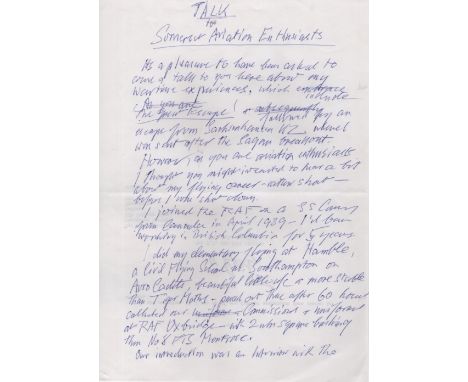 TALK
to
Somerset Aviation Enthusiasts
It's a pleasure to have been asked to
come & talk to you here about my
wartime experiences, which embrace
include
As you are
the Great Escape! & subsequently followed by an
escape from Sachsenhausen KZ, where I
was sent after the Sagan breakout.
However, as you are aviation enthusiasts
I thought you might want to hear a bit
about my flying career - rather short -
before I was shot down.
I joined the RAF on a SS Comm
from Canada in April 1939 - I'd been
working in British Columbia for 5 years
I did my elementary flying at Hamble,
a Civil Flying School nr. Southampton on
Avro Cadets, beautiful little a/c & more stable
than Tiger Moths - passed out there after 60 hours
collected our Commissions & uniforms
at RAF Uxbridge - with 2 wks square bashing
then No 8 FTS Montrose.
Our introduction was an Interview with the